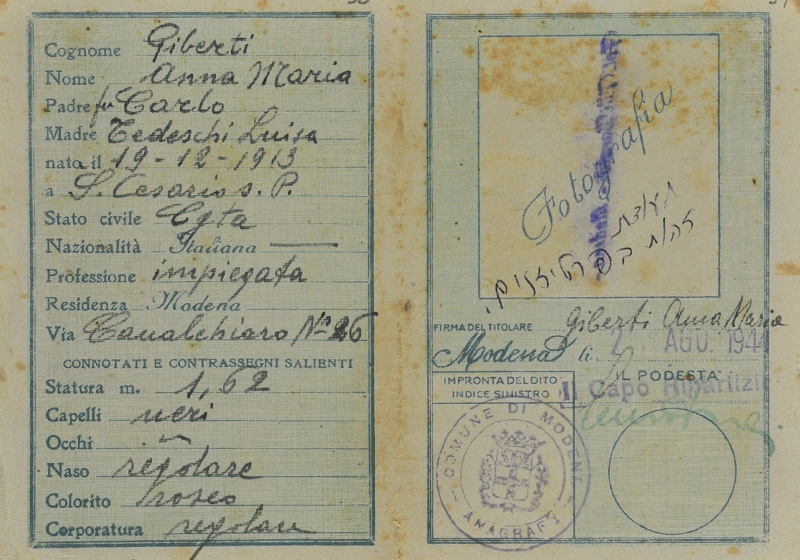 Cognome Giberti
Nome Anna Maria
Padre fu Carlo
Madre Tedeschi Luisa
nato il 19-12-1913
a S. Cesario s. P.
Stato civile Cgta
Nazionalità Italiana
Professione impiegata
Residenza Modena
Via Cavalchiaro Nº 26
CONNOTATI E CONTRASSEGNI SALIENTI
Statura m. 1,62
Capelli neri
Occhi
Naso regolare
Colorito roseo
Corporatura regolare
Fotografia
תעודת
זהות בפרטיזנים.
FIRMA DEL TITOLARE Giberti Anna Maria
Modena lì 2 AGO. 1944
IMPRONTA DEL DITO
INDICE SINISTRO
IL PODESTA'
Il Capo Ripartizi
COMUNE DI MODENA
ANAGRAFE